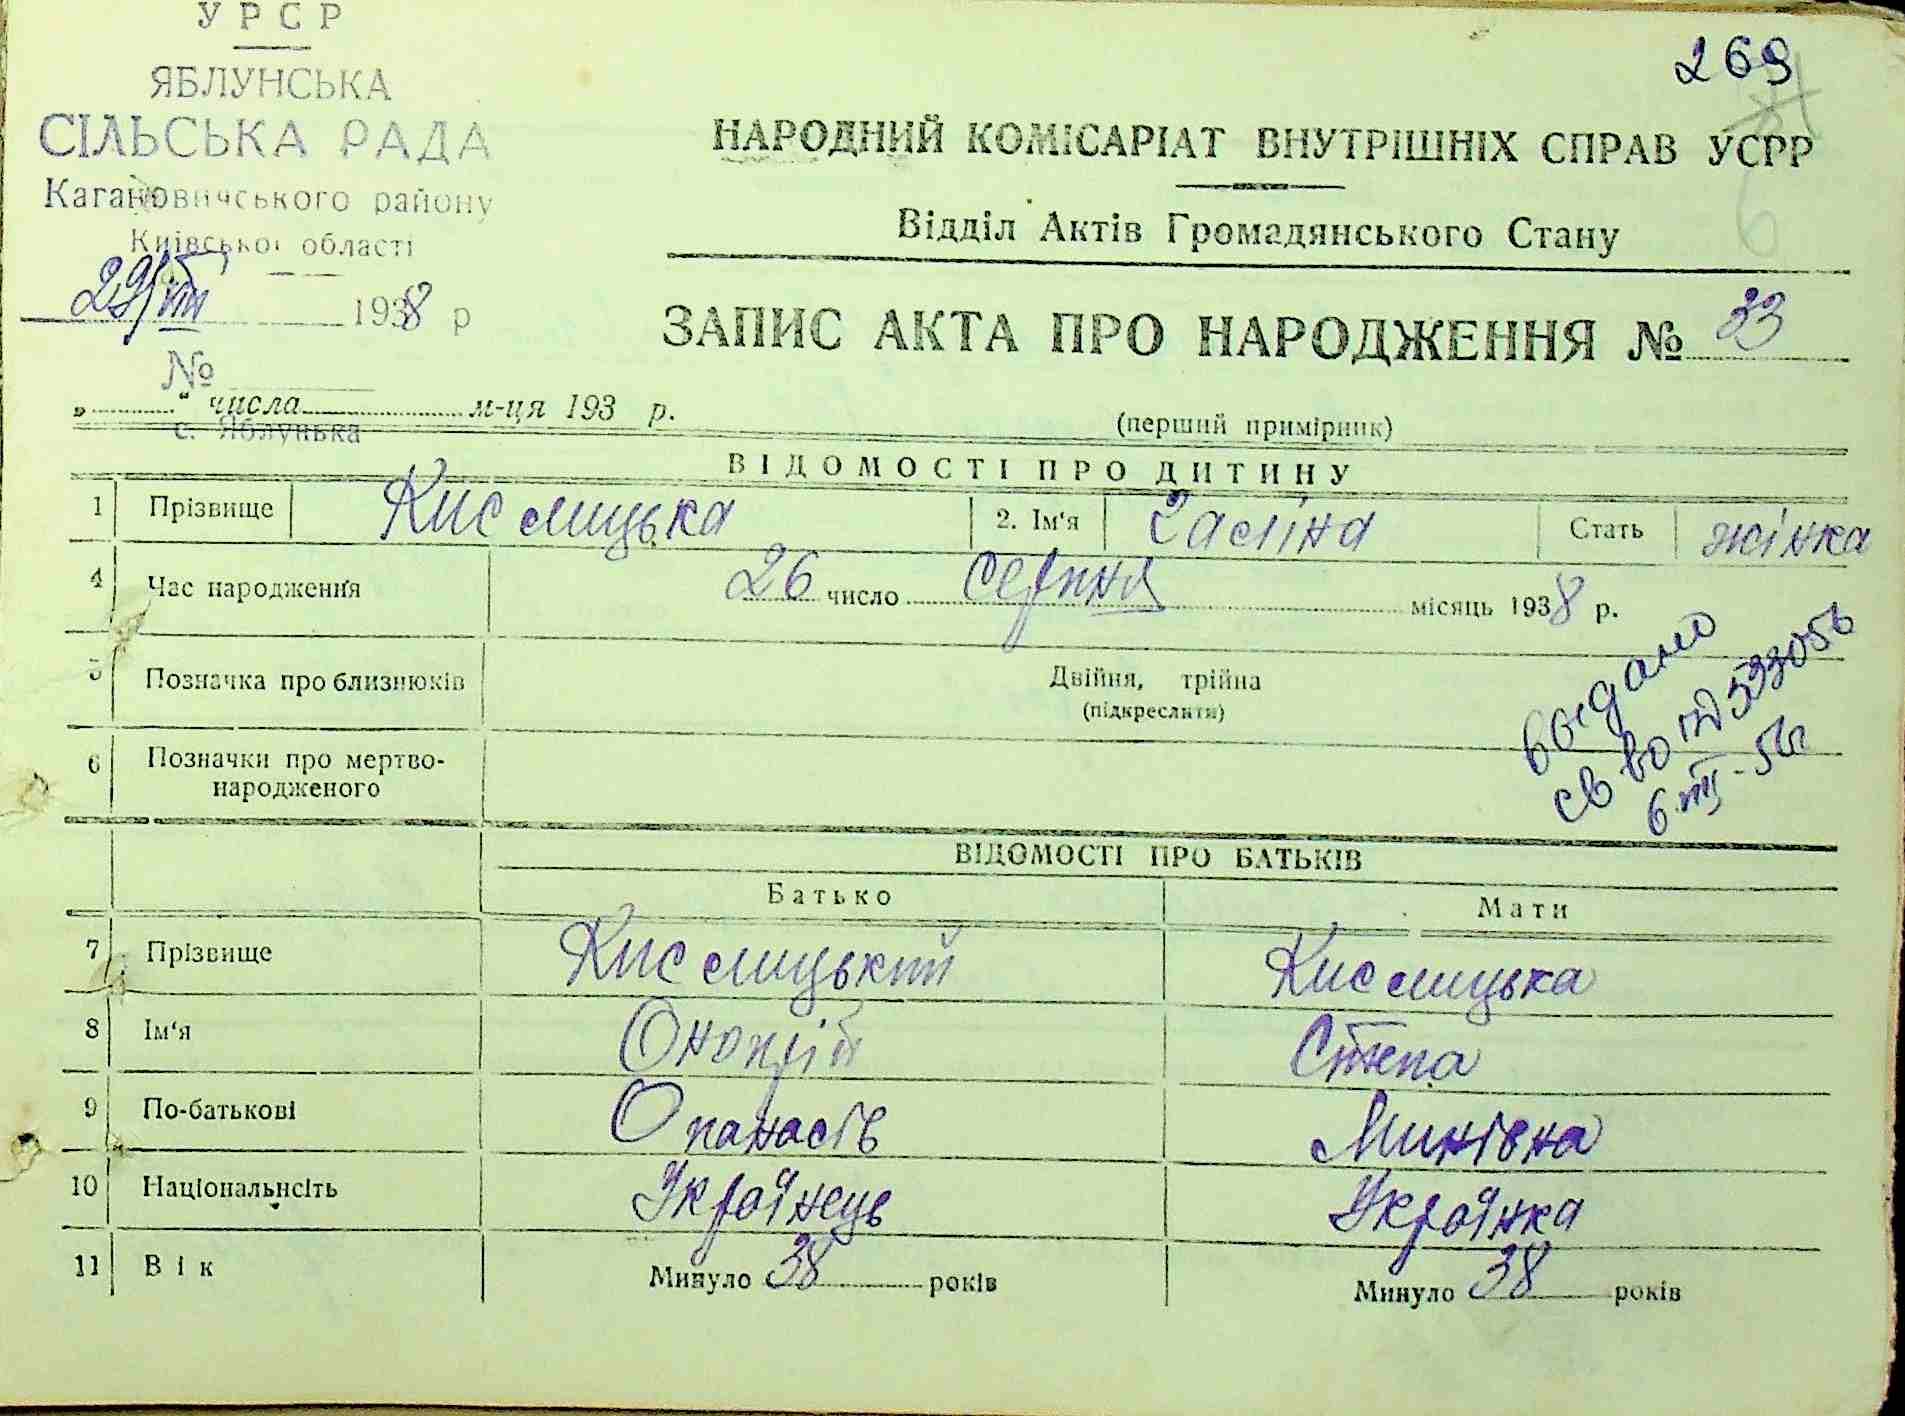 УРСР
ЯБЛУНСЬКА
СІЛЬСЬКА РАДА
Кагановичського району
Київської області
29/VIII 1938 р
№
с. Яблунька
269
НАРОДНИЙ КОМІСАРІАТ ВНУТРІШНІХ СПРАВ УСРР
Відділ Актів Громадянського Стану
ЗАПИС АКТА ПРО НАРОДЖЕННЯ № 33
„ “ числа м-ця 193 р.
(перший примірник)
ВІДОМОСТІ ПРО ДИТИНУ
1 Прізвище Кислицька 2. Ім‘я Галіна Стать жінка
4 Час народження 26 число Серпня місяць 1938 р.
5 Позначка про близнюків Двійня, трійна
(підкреслити)
6 Позначки про мертво-
народженого
выдано
св во
6.VIII-56г
ВІДОМОСТІ ПРО БАТЬКІВ
Батько Мати
7 Прізвище Кислицький Кислицька
8 Ім‘я Онопрій Степа
9 По-батькові Опанасів Минівна
10 Національнсіть Українець Українка
11 Вік Минуло 38 років Минуло 38 років